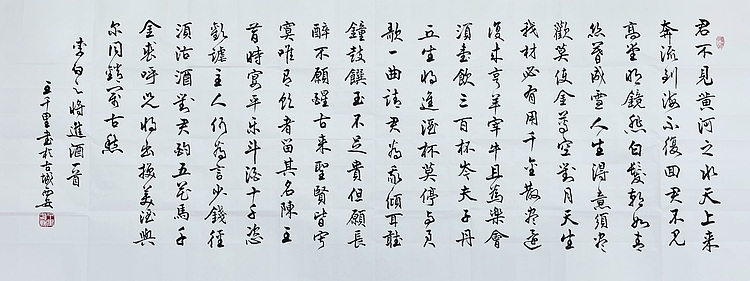 君不見黄河之水天上来
奔流到海不復回君不見
高堂明鏡悲白髮朝如青
丝暮成雪人生得意須尽
歡莫使金尊空對月天生
我材必有用千金散尽還
復来烹羊宰牛且為樂會
須壹飲三百杯岑夫子丹
丘生将進酒杯莫停与君
歌一曲請君為我傾耳聽
鐘鼓饌玉不足貴但願長
醉不願醒古来聖賢皆寂
寞唯有飲者留其名陳王
昔時宴平乐斗酒十千恣
歡謔主人何為言少錢徑
須沽酒對君酌五花馬千
金裘呼児将出換美酒與
尔同銷萬古愁
李白之将進酒一首
王千里書於古城西安